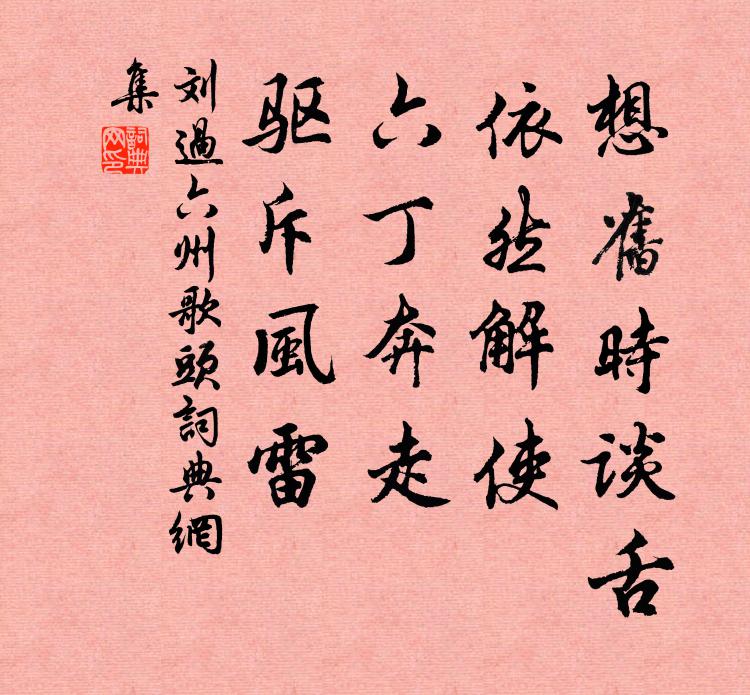 想舊時談舌
依然解使
六丁奔走
驱斥風雷
刘過六州歌頭詞典網
集
詞典網印